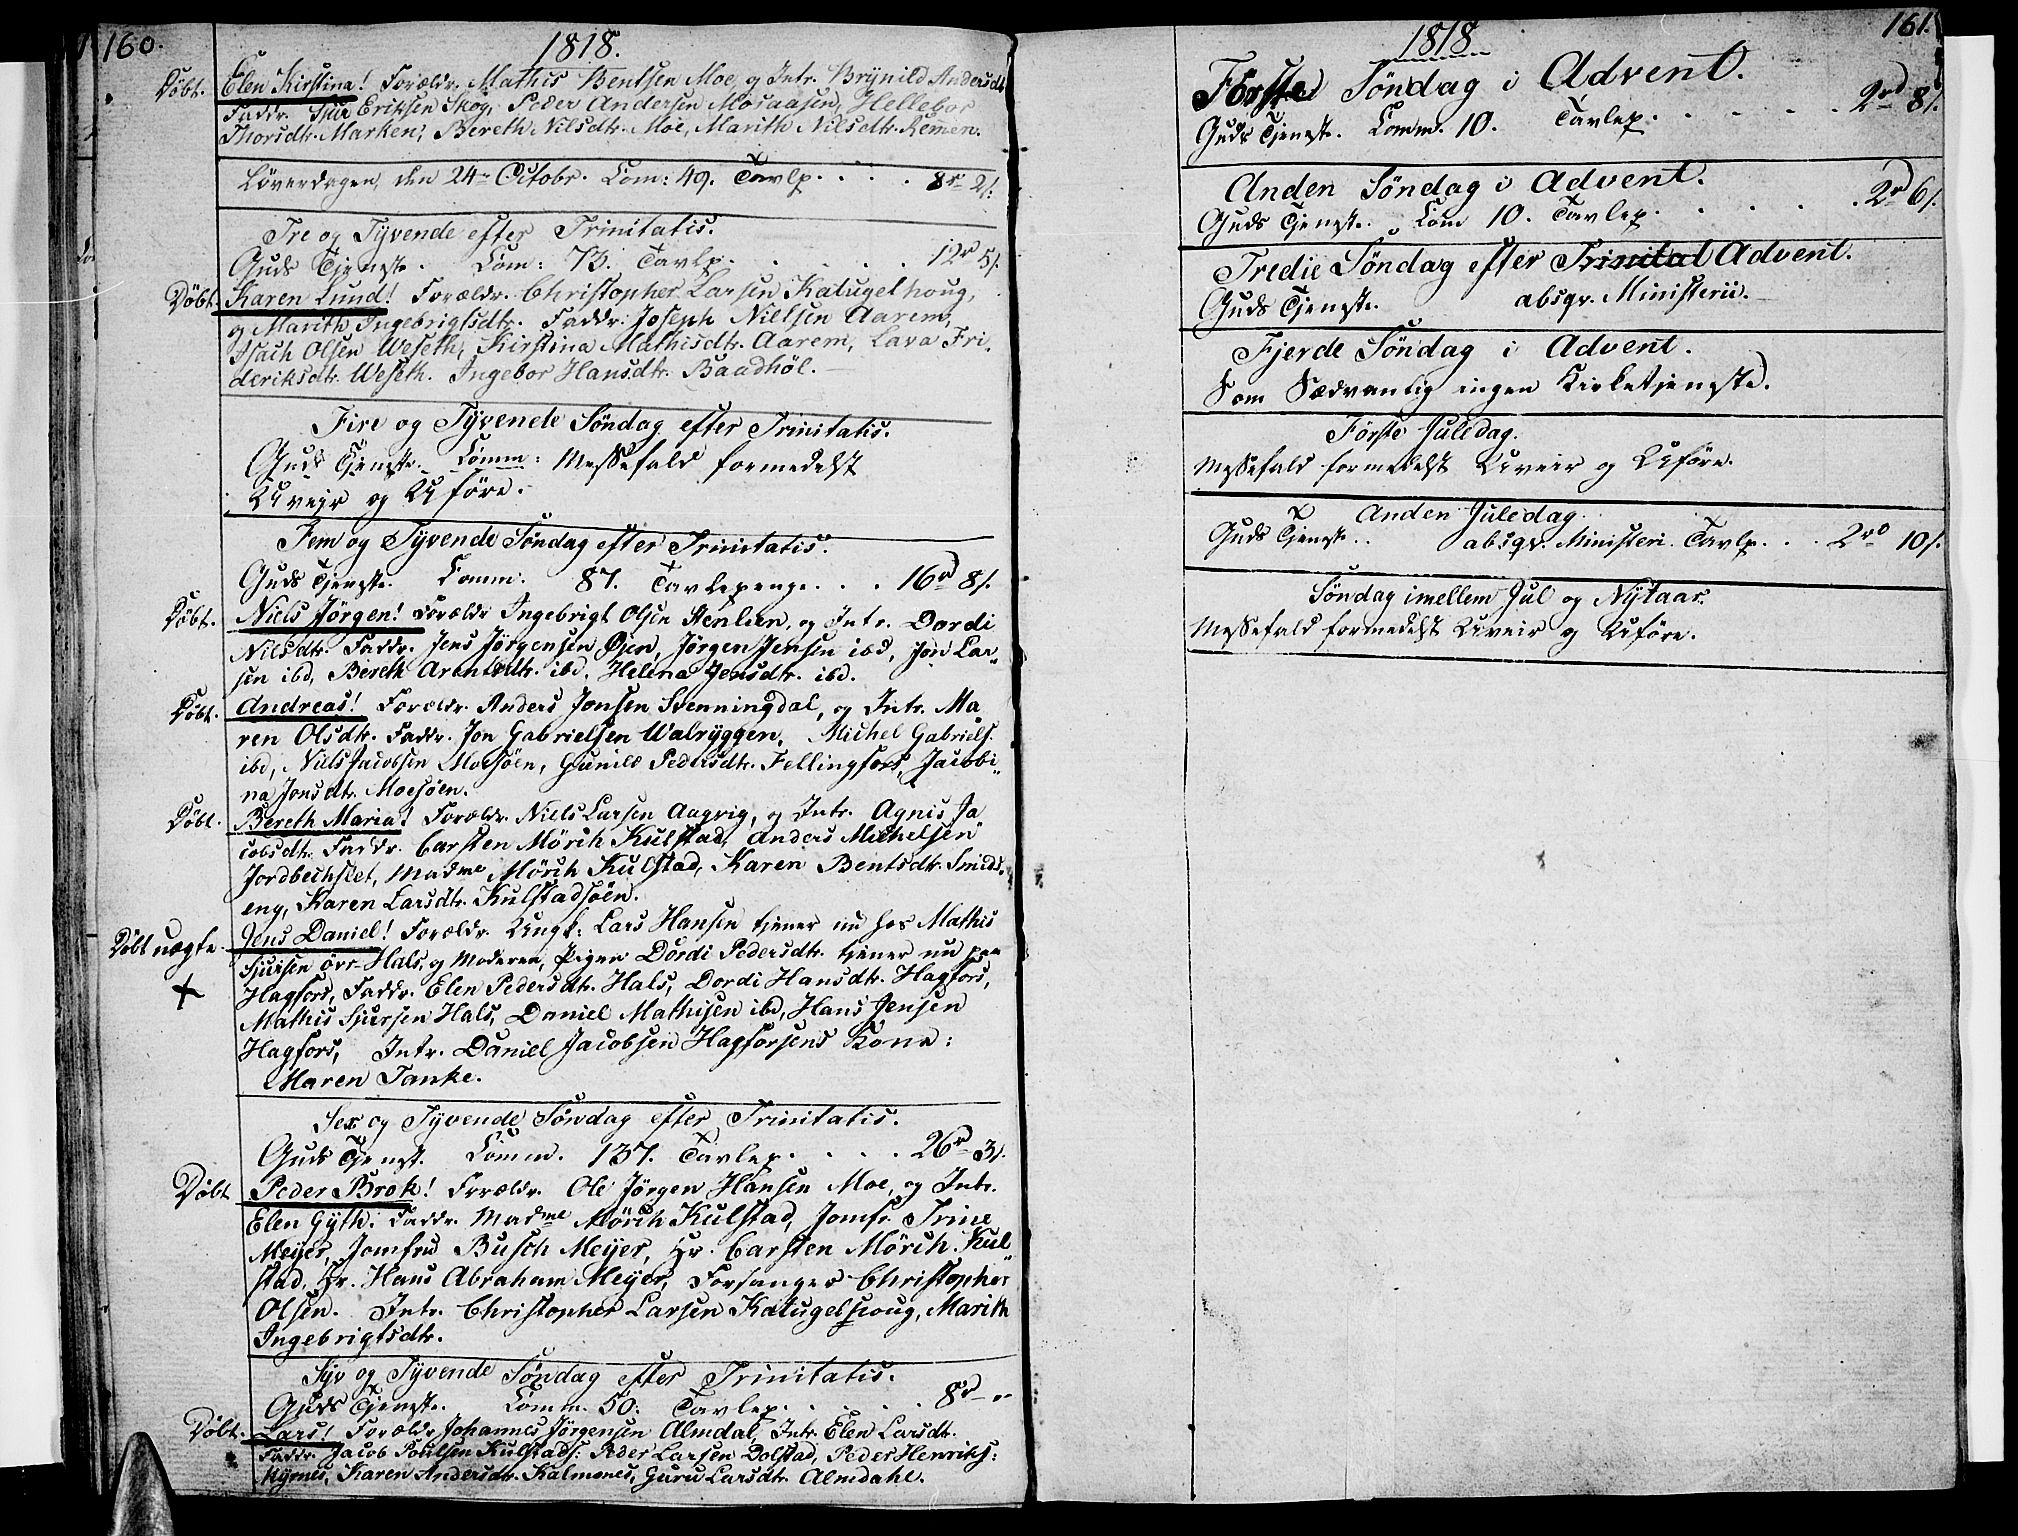 160.
1818.
Döbt. Elen Kirstina! Forældr. Mathis Bentsen Moe, og Intr. Brÿnild Andersdt.
Faddr. Siur Eriksen Skog, Peder Andersen Mosaasen, Hellebor
Thorsdtr. Marken, Bereth Nilsdtr. Moe, Marith Nilsdtr. Remen.
Löverdagen den 24 Octobr. Com: 49. Tavlp. . . . . 8 rd 2 s.
Tre og Tÿvende efter Trinitatis.
Guds Tjeneste. Com: 73. Tavlp. . . . . . 12 rd 5 s.
Döbt. Karen Lund! Forældr. Christopher Larsen Katugelhoug,
og Marith Ingebrigtsdtr. Faddr. Joseph Nielsen Aarem,
Isach Olsen Weseth, Kirstina Mathisdtr. Aarem, Lava Fri-
deriksdtr. Weseth. Ingebor Hansdtr. Baadhöl.
Fire og Tÿvende Söndag efter Trinitatis.
Guds Tjeneste. Comm: Messefald formedelst
Uveir og Uföre.
Fem og Tÿvende Söndag efter Trinitatis.
Guds Tjeneste. Comm. 87. Tavlepenge . . . 16 rd 8 s.
Döbt. Niels Jörgen! Forældr Ingebrigt Olsen Stenlien, og Intr. Dordi
Nilsdtr. Faddr. Jens Jörgensen Öjen, Jörgen Jensen ibd, Jon Lar-
sen ibd, Bereth Arentsdtr. ibd. Helena Jensdtr. ibd.
Döbt. Andreas! Forældr. Anders Jonsen Svenningdal, og Intr. Ma
ren Olsdtr. Faddr. Jon Gabrielsen Walrÿggen, Michel Gabriels.
ibd, Niels Jacobsen Moesöen, Gunild Pedersdtr. Fellingfors, Jacobi-
na Jonsdtr. Moesöen.
Döbt. Bereth Maria! Forældr. Niels Larsen Aagvig, og Intr. Agnis Ja
cobsdtr. Faddr. Carsten Mörch Kulstad, Anders Michelsen
Jordbechslet, Madme Mörch Kulstad, Karen Bentsdtr. Smids-
eng, Karen Larsdtr. Kulstadsöen.
Döbt uægte. Jens Daniel! Forældr. Ungk: Lars Hansen tjener nu hos Mathis
Sjursen övr Hals, og Moderen, Pigen Dordi Pedersdtr. tjener nu paa
Hagfors, Faddr. Elen Pedersdtr. Hals, Dordi Hansdtr. Hagfors,
Mathis Sjursen Hals, Daniel Mathisen ibd, Hans Jensen
Hagfors, Intr. Daniel Jacobsen Hagforsens Kone:
Maren Tanke.
Sex og Tÿvende Söndag efter Trinitatis.
Guds Tjenest. Comm. 137. Tavlep. . . . . 26 rd 3 s.
Döbt Peder Brok! Forældr. Ole Jörgen Hansen Moe, og Intr.
Elen Gÿth. Faddr. Madme Mörch Kulstad, Jomfr. Trine
Meÿer, Jomfru Busch Meÿer, Hr. Carsten Mörch Kul-
stad, Hr. Hans Abraham Meÿer, Forsanger Christopher
Olsen. Intr. Christopher Larsen Katugelhoug, Marith
Ingebrigtsdtr.
Sÿv og Tÿvende Söndag efter Trinitatis.
Guds Tjeneste. Comm. 50. Tavlep. . . . . 8 rd "
Döbt. Lars! Forældr Johannes Jörgensen Almdal, Intr. Elen Larsdt.
Faddr. Jacob Poulsen Kulstads: Peder Larsen Dolstad, Peder Henriks:
Kÿrnes, Karen Andersdtr. Kalmones, Guru Larsdtr. Almdahl.
161.
1818
Förste Söndag i Advent.
Guds Tjeneste. Comm. 10. Tavlep. . . . . . 2 rd 8 s.
Anden Söndag i Advent.
Guds Tjeneste. Com 10. Tavlep. . . . . . 2 rd 6 s.
Tredie Söndag efter Trinitat Advent.
Guds Tjeneste. absqv. Ministerii.
Fjerde Söndag i Advent.
Som Sædvanlig ingen Kirketjeneste.
Förste Juledag.
Messefald formedelst Uveir og Uföre.
Anden Juledag.
Guds Tjeneste. . absqv. Ministeri. Tavlp. . . 2 rd 10 s.
Söndag imellem Jul og Nÿtaar.
Messefald formedelst Uveir og Uföre.